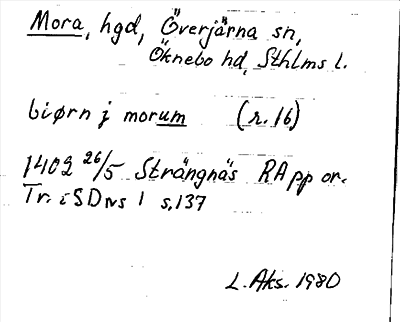 Mora, hgd, Överjärna sn,
Öknebo hd, Sthlms l.
biørn j morum (r. 16)
1402 26/5 Strängnäs RA pp or.
Tr. i SD ns 1 s. 137
L. Aks. 1980